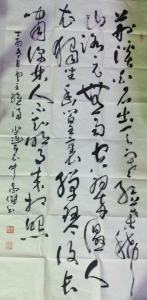 荆溪白石出天寒红叶稀
山路元无雨空翠湿人
衣独坐幽篁里弹琴复长
啸深林人不知明月来相照